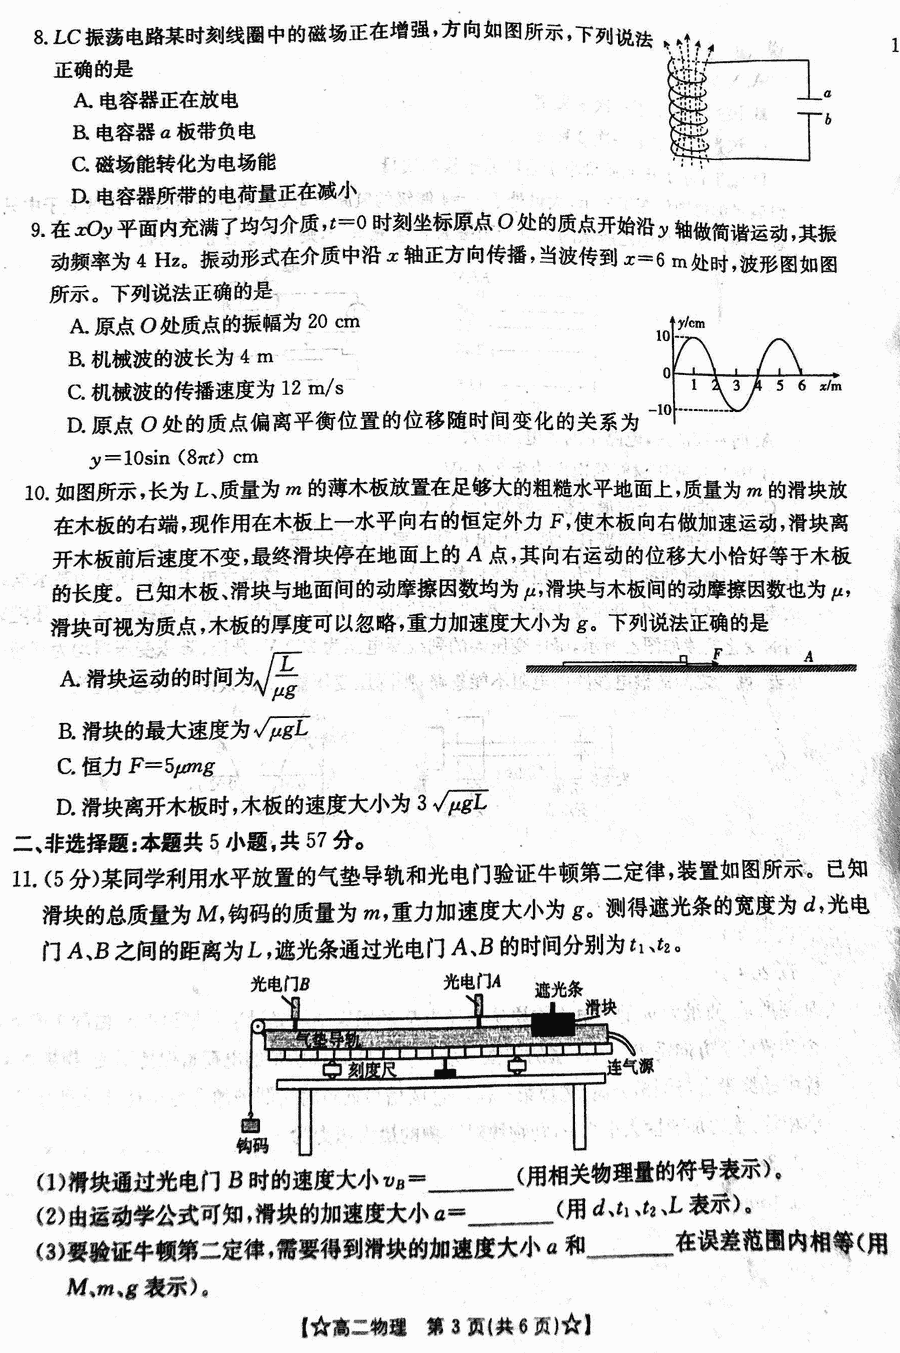 8. LC 振荡电路某时刻线圈中的磁场正在增强,方向如图所示,下列说法
正确的是
A. 电容器正在放电
B. 电容器 a 板带负电
C. 磁场能转化为电场能
D. 电容器所带的电荷量正在减小
a
b
1
9. 在 xOy 平面内充满了均匀介质,t=0 时刻坐标原点 O 处的质点开始沿 y 轴做简谐运动,其振
动频率为 4 Hz。振动形式在介质中沿 x 轴正方向传播,当波传到 x=6 m 处时,波形图如图
所示。下列说法正确的是
A. 原点 O 处质点的振幅为 20 cm
B. 机械波的波长为 4 m
C. 机械波的传播速度为 12 m/s
D. 原点 O 处的质点偏离平衡位置的位移随时间变化的关系为
y=10sin (8πt) cm
y/cm
10
0
-10
1 2 3 4 5 6 x/m
10. 如图所示,长为 L、质量为 m 的薄木板放置在足够大的粗糙水平地面上,质量为 m 的滑块放
在木板的右端,现作用在木板上一水平向右的恒定外力 F,使木板向右做加速运动,滑块离
开木板前后速度不变,最终滑块停在地面上的 A 点,其向右运动的位移大小恰好等于木板
的长度。已知木板、滑块与地面间的动摩擦因数均为 μ,滑块与木板间的动摩擦因数也为 μ,
滑块可视为质点,木板的厚度可以忽略,重力加速度大小为 g。下列说法正确的是
A. 滑块运动的时间为√(L/μg)
F
A
B. 滑块的最大速度为√μgL
C. 恒力 F=5μmg
D. 滑块离开木板时,木板的速度大小为 3√μgL
二、非选择题:本题共 5 小题,共 57 分。
11. (5 分)某同学利用水平放置的气垫导轨和光电门验证牛顿第二定律,装置如图所示。已知
滑块的总质量为 M,钩码的质量为 m,重力加速度大小为 g。测得遮光条的宽度为 d,光电
门 A、B 之间的距离为 L,遮光条通过光电门 A、B 的时间分别为 t₁、t₂。
光电门B
光电门A
遮光条
滑块
气垫导轨
刻度尺
连气源
钩码
(1)滑块通过光电门 B 时的速度大小 v_B=________(用相关物理量的符号表示)。
(2)由运动学公式可知,滑块的加速度大小 a=________(用 d、t₁、t₂、L 表示)。
(3)要验证牛顿第二定律,需要得到滑块的加速度大小 a 和________在误差范围内相等(用
M、m、g 表示)。
【☆高二物理 第 3 页(共 6 页)☆】